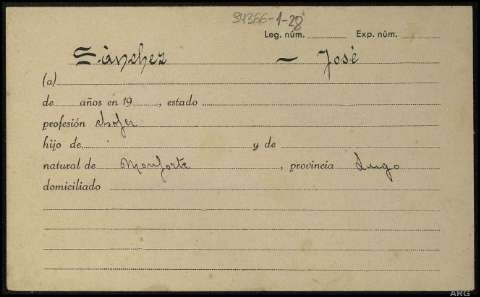 94366-1-28
Leg. núm. Exp. núm.
Sánchez — José
(a)
de años en 19 , estado
profesión chofer
hijo de y de
natural de Monforte , provincia Lugo
domiciliado
ARG